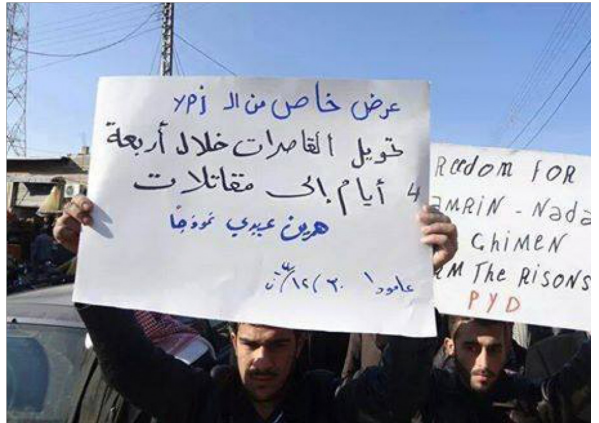 عرض خاص من الـ ypj
تحويل القاصرات خلال أربعة
4 أيام إلى مقاتلات
هرين عبدي نموذجاً
عامودا
REEDOM FOR
AMRIN - NADA
GHIMEN
The RISONS
PYD